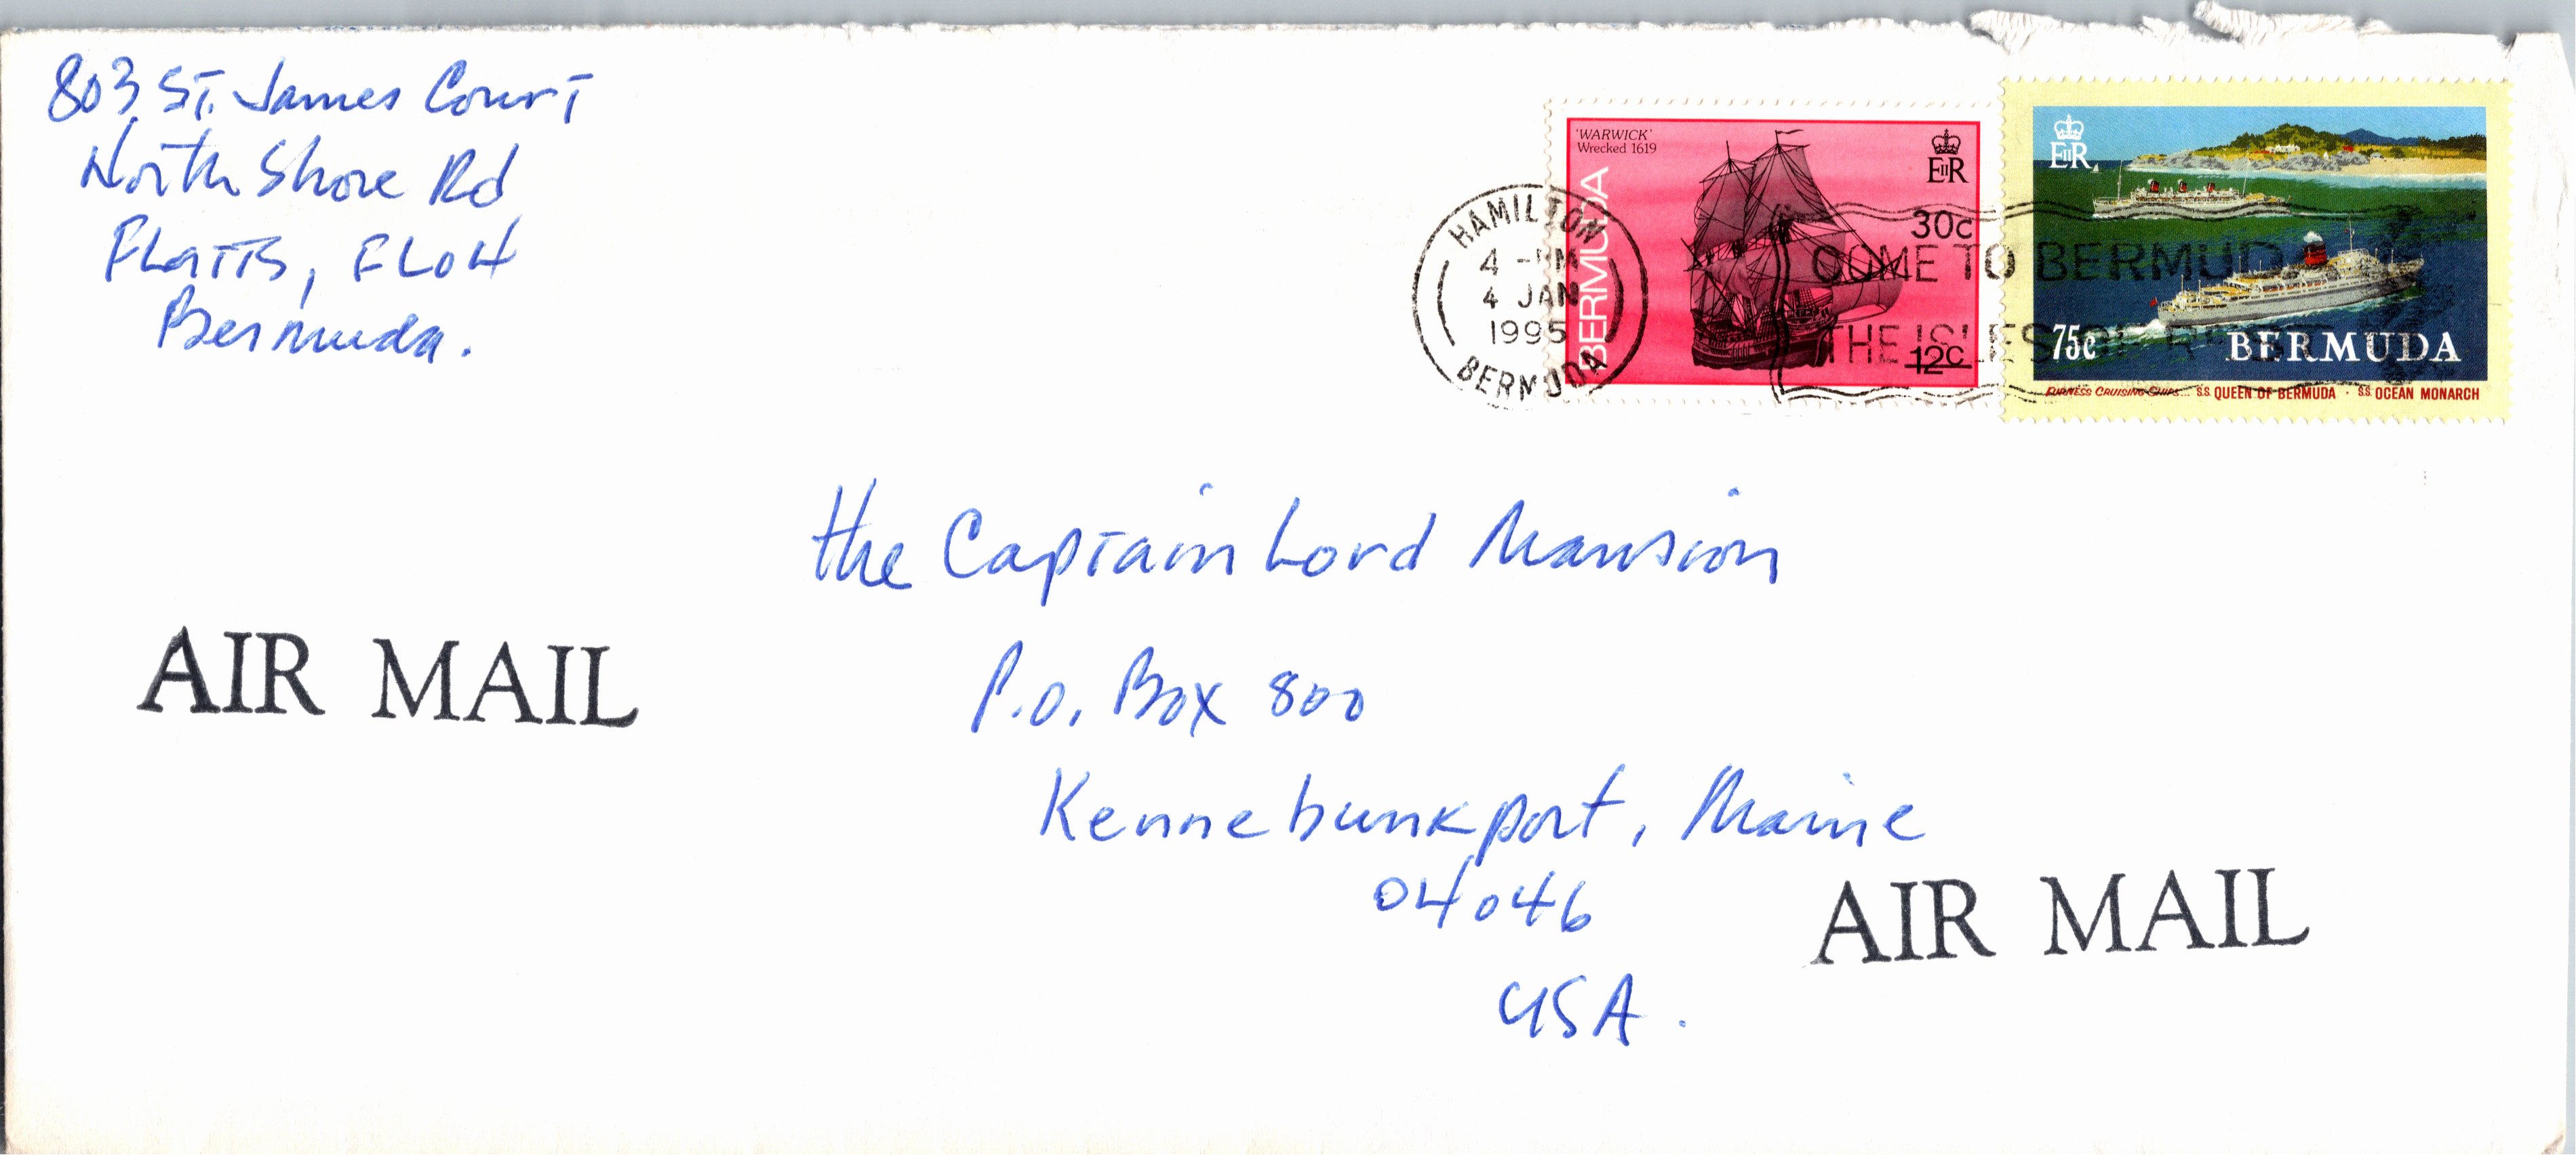 803 St. James Court
North Shore Rd
Flatts, FL04
Bermuda.
HAMILTON
4 -PM
4 JAN
1995
BERMUDA
'WARWICK'
Wrecked 1619
BERMUDA
EIIR
30c
12c
COME TO BERMUDA
THE ISLES OF REST
EIIR
75c
BERMUDA
FURNESS CRUISING SHIPS... S.S. QUEEN OF BERMUDA · S.S. OCEAN MONARCH
The Captain Lord Mansion
P.O. Box 800
Kennebunkport, Maine
04046
USA.
AIR MAIL
AIR MAIL